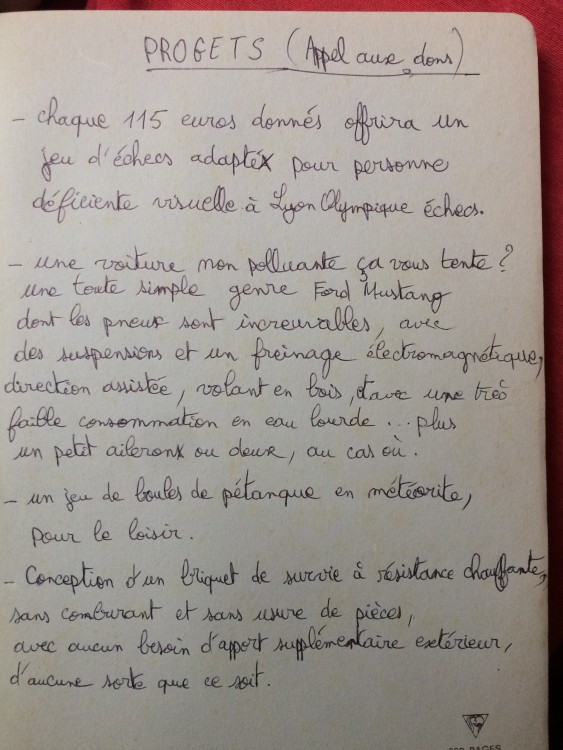 PROGETS (Appel aux dons)
- chaque 115 euros donnés offrira un
jeu d'échecs adapté pour personne
déficiente visuelle à Lyon Olympique échecs.
- une voiture non polluante ça vous tente ?
une toute simple genre Ford Mustang
dont les pneux sont increuvables, avec
des suspensions et un freinage électromagnétique,
direction assistée, volant en bois, et avec une très
faible consommation en eau lourde ... plus
un petit aileron ou deux, au cas où.
- un jeu de boules de pétanque en météorite,
pour le loisir.
- Conception d'un briquet de survie à résistance chauffante,
sans comburant et sans usure de pièces,
avec aucun besoin d'apport supplémentaire extérieur,
d'aucune sorte que ce soit.
PAGES